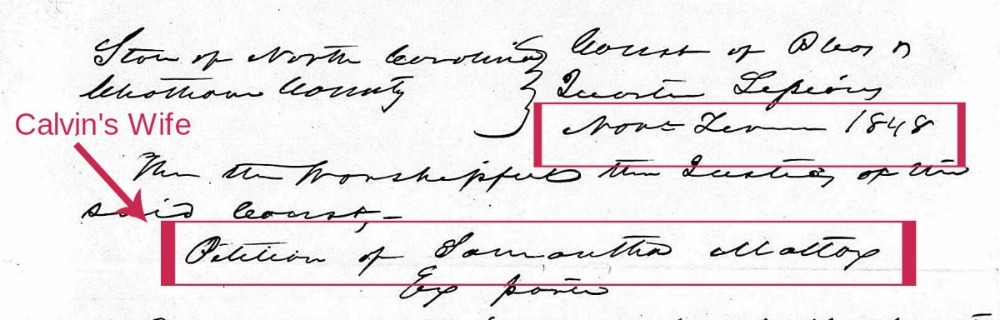 State of North Carolina } Court of Pleas &
Chatham County } Quarter Sessions
Novr Term 1848
Calvin's Wife
To the Worshipful the Justices of the
said Court,-
Petition of Samantha Mattox
Ex parte